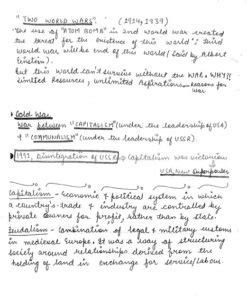 "TWO WORLD WARS" (1914,1939)
The use of "ATOM BOMB" in 2nd world war created
the for the existence of this world; third
world war will be end of this world (said by Albert
Einstein).
but this world can't survive without the WAR. WHY?
limited Resources, unlimited Aspirations reasons for war
Cold War
War between "CAPITALISM" (under the leadership of USA)
& "COMMUNALISM" (under the leadership of USSR)
1991, Disintegration of USSR Capitalism was victorious
USA, New Superpower
Capitalism - Economic & political system in which
a country's trade & industry are controlled by
private owners for profit, rather than by state.
Feudalism - Combination of legal & military customs
in medieval Europe. It was a way of structuring
society around relationships derived from the
holding of land in exchange for service/labour